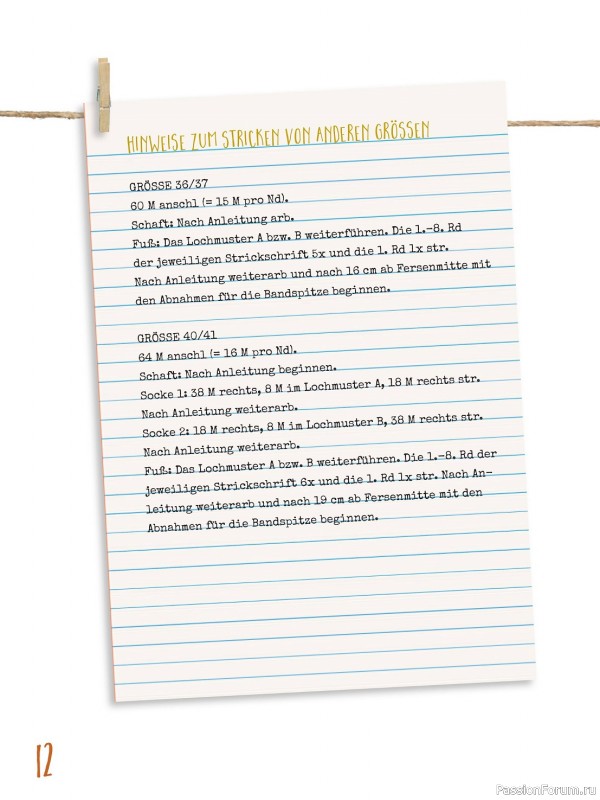 HINWEISE ZUM STRICKEN VON ANDEREN GRÖSSEN
GRÖSSE 36/37
60 M anschl (= 15 M pro Nd).
Schaft: Nach Anleitung arb.
Fuß: Das Lochmuster A bzw. B weiterführen. Die 1.–8. Rd
der jeweiligen Strickschrift 5x und die 1. Rd 1x str.
Nach Anleitung weiterarb und nach 16 cm ab Fersenmitte mit
den Abnahmen für die Bandspitze beginnen.
GRÖSSE 40/41
64 M anschl (= 16 M pro Nd).
Schaft: Nach Anleitung beginnen.
Socke 1: 38 M rechts, 8 M im Lochmuster A, 18 M rechts str.
Nach Anleitung weiterarb.
Socke 2: 18 M rechts, 8 M im Lochmuster B, 38 M rechts str.
Nach Anleitung weiterarb.
Fuß: Das Lochmuster A bzw. B weiterführen. Die 1.–8. Rd der
jeweiligen Strickschrift 6x und die 1. Rd 1x str. Nach An-
leitung weiterarb und nach 19 cm ab Fersenmitte mit den
Abnahmen für die Bandspitze beginnen.
12
PassionForum.ru